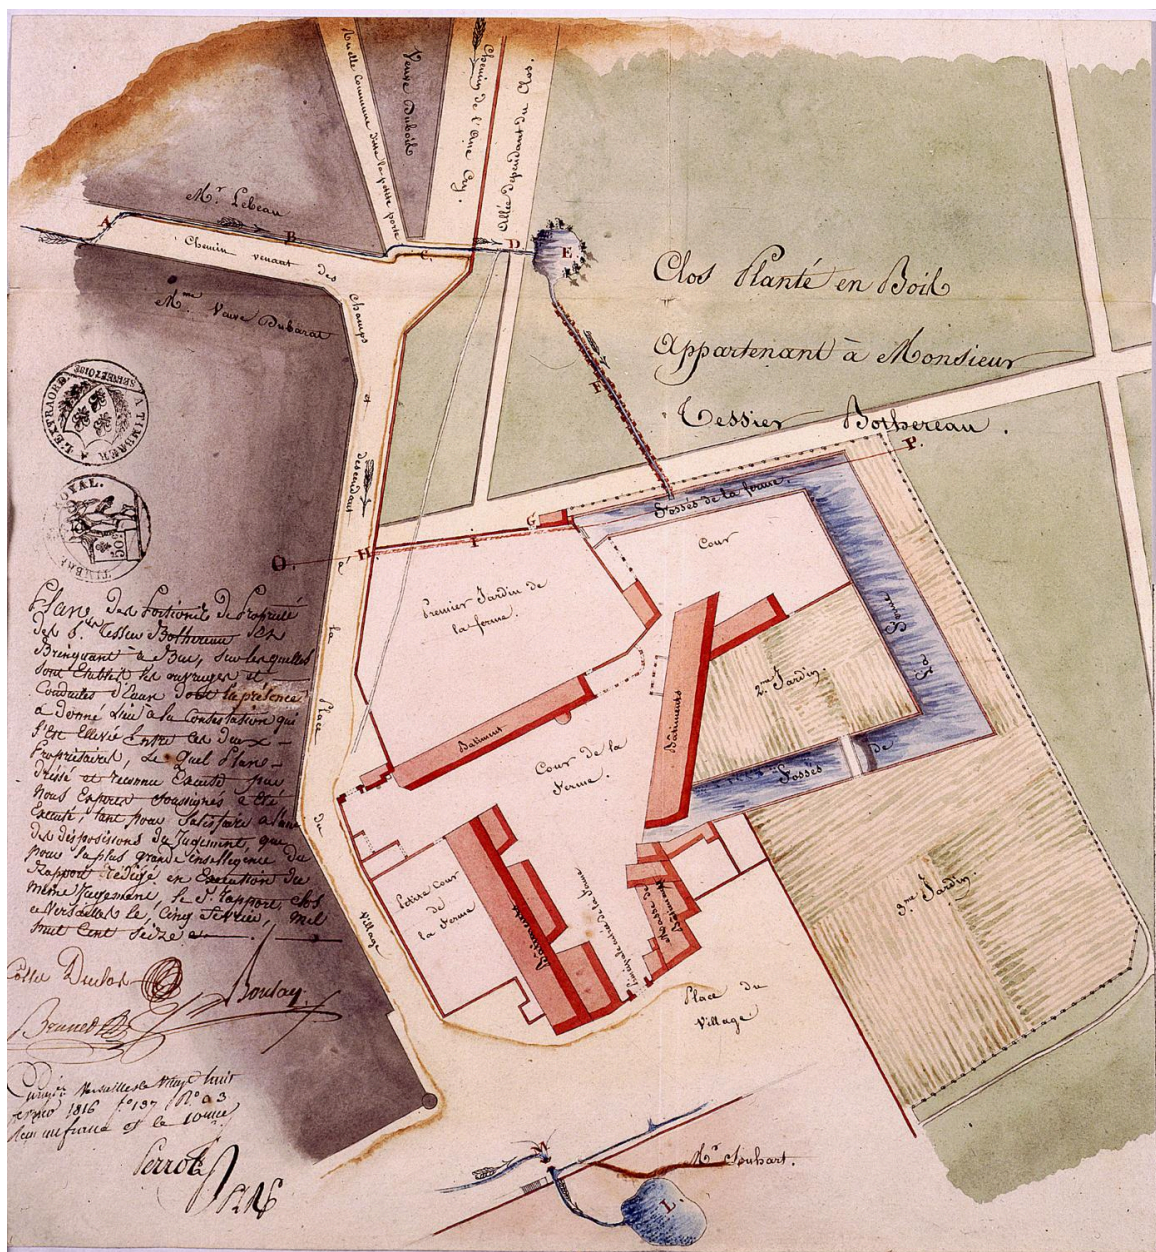 Ruelle Commune dite la petite porte
Veuve Dubois
Chemin de l'Orme
Allée dépendant du Clos.
Mr. Lebeau
A
B
C.
D
E.
F
Chemin venant des Champs et descendant à la Place du Village
Mme. Veuve Dubarat
Clos Planté en Bois
Appartenant à Monsieur
Tessier Bothereau.
P.
Fossés de la ferme.
G
I
H.
O.
Cour
Premier Jardin de
la ferme.
2me Jardin.
Bâtiment
Bâtiments
Cour de la
ferme.
Fossés de
3me Jardin.
Petite Cour
de
la ferme
Bâtiments
Principale entrée de la ferme
Masse de
Bâtiments
Place du
Village
M
Mr
L.
A TIMBRER A L'EXTRAORD.
SEINE ET OISE
TIMBRE ROYAL.
30C
Plan des Portions de Propriété
des S. Tessier Bothereau
à Buc, sur lesquelles
sont Etablis les ouvrages et
Conduites d'Eau dont la présence
a donné lieu à la Contestation qui
s'est Ellevée Entre ces deux
Propriétaires, Le quel Plan
dressé et reconnu Exacte par
Nous Experts soussignés a été
Exécuté, tant pour Satisfaire à l'une
des dispositions du Jugement, que
pour la plus grande intelligence du
Rapport rédigé en Exécution du
même Jugement, le dt. rapport clos
à Versailles le, Cinq février, mil
huit Cent seize
Duclos
Boulay
Versailles le Vingt huit
1816 fo 137
un franc et le
Perrot